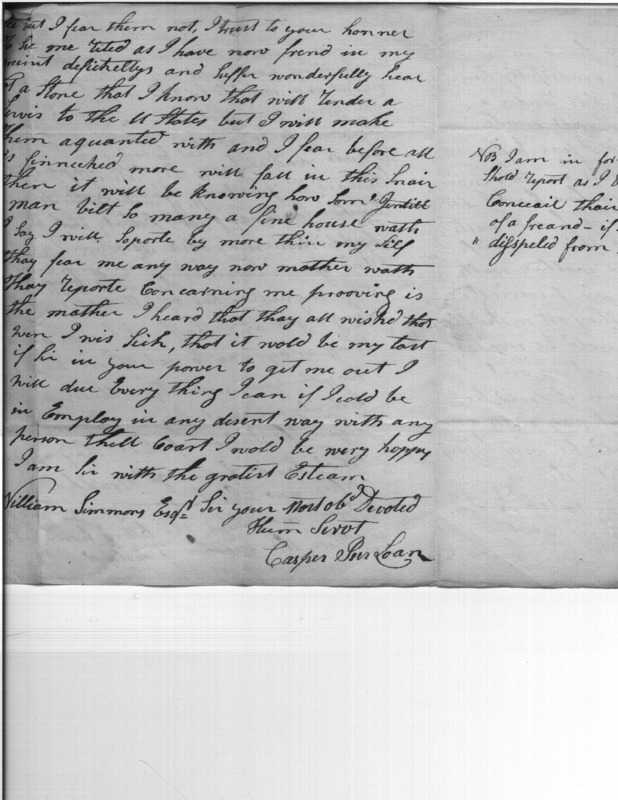 but I fear them not, I trust to your honner
to Sir me rited as I have now frend in my
presint defichettys and Suffer wonderfully hear
a Stone that I know that will render a
Servis to the U States but I will make
them aquanted with and I fear before all
is finneched more will fall in this Snair
then it will be knowing how Som Jentill
man bilt So many a fine house wath
I Say I will Soporte by more then my Self
thay fear me any way now mather wath
thay reporte Concearning me prooving is
the mather I heard that thay all wished that
wen I wis Sick, that it wold be my last
if Sir in your power to get me out I
will due Every thing I can if I cold be
in Employ in any desent way with any
person thell Coart I wold be wery hoppy
I am Sir with the gratist Esteam
William Simmons Esqr. Sir your Most obd Devoted
Hum Servt
Casper Iser Loan
NB I am in for
Shold report as I
Conceail thair
of a freand - if
" disspeled from